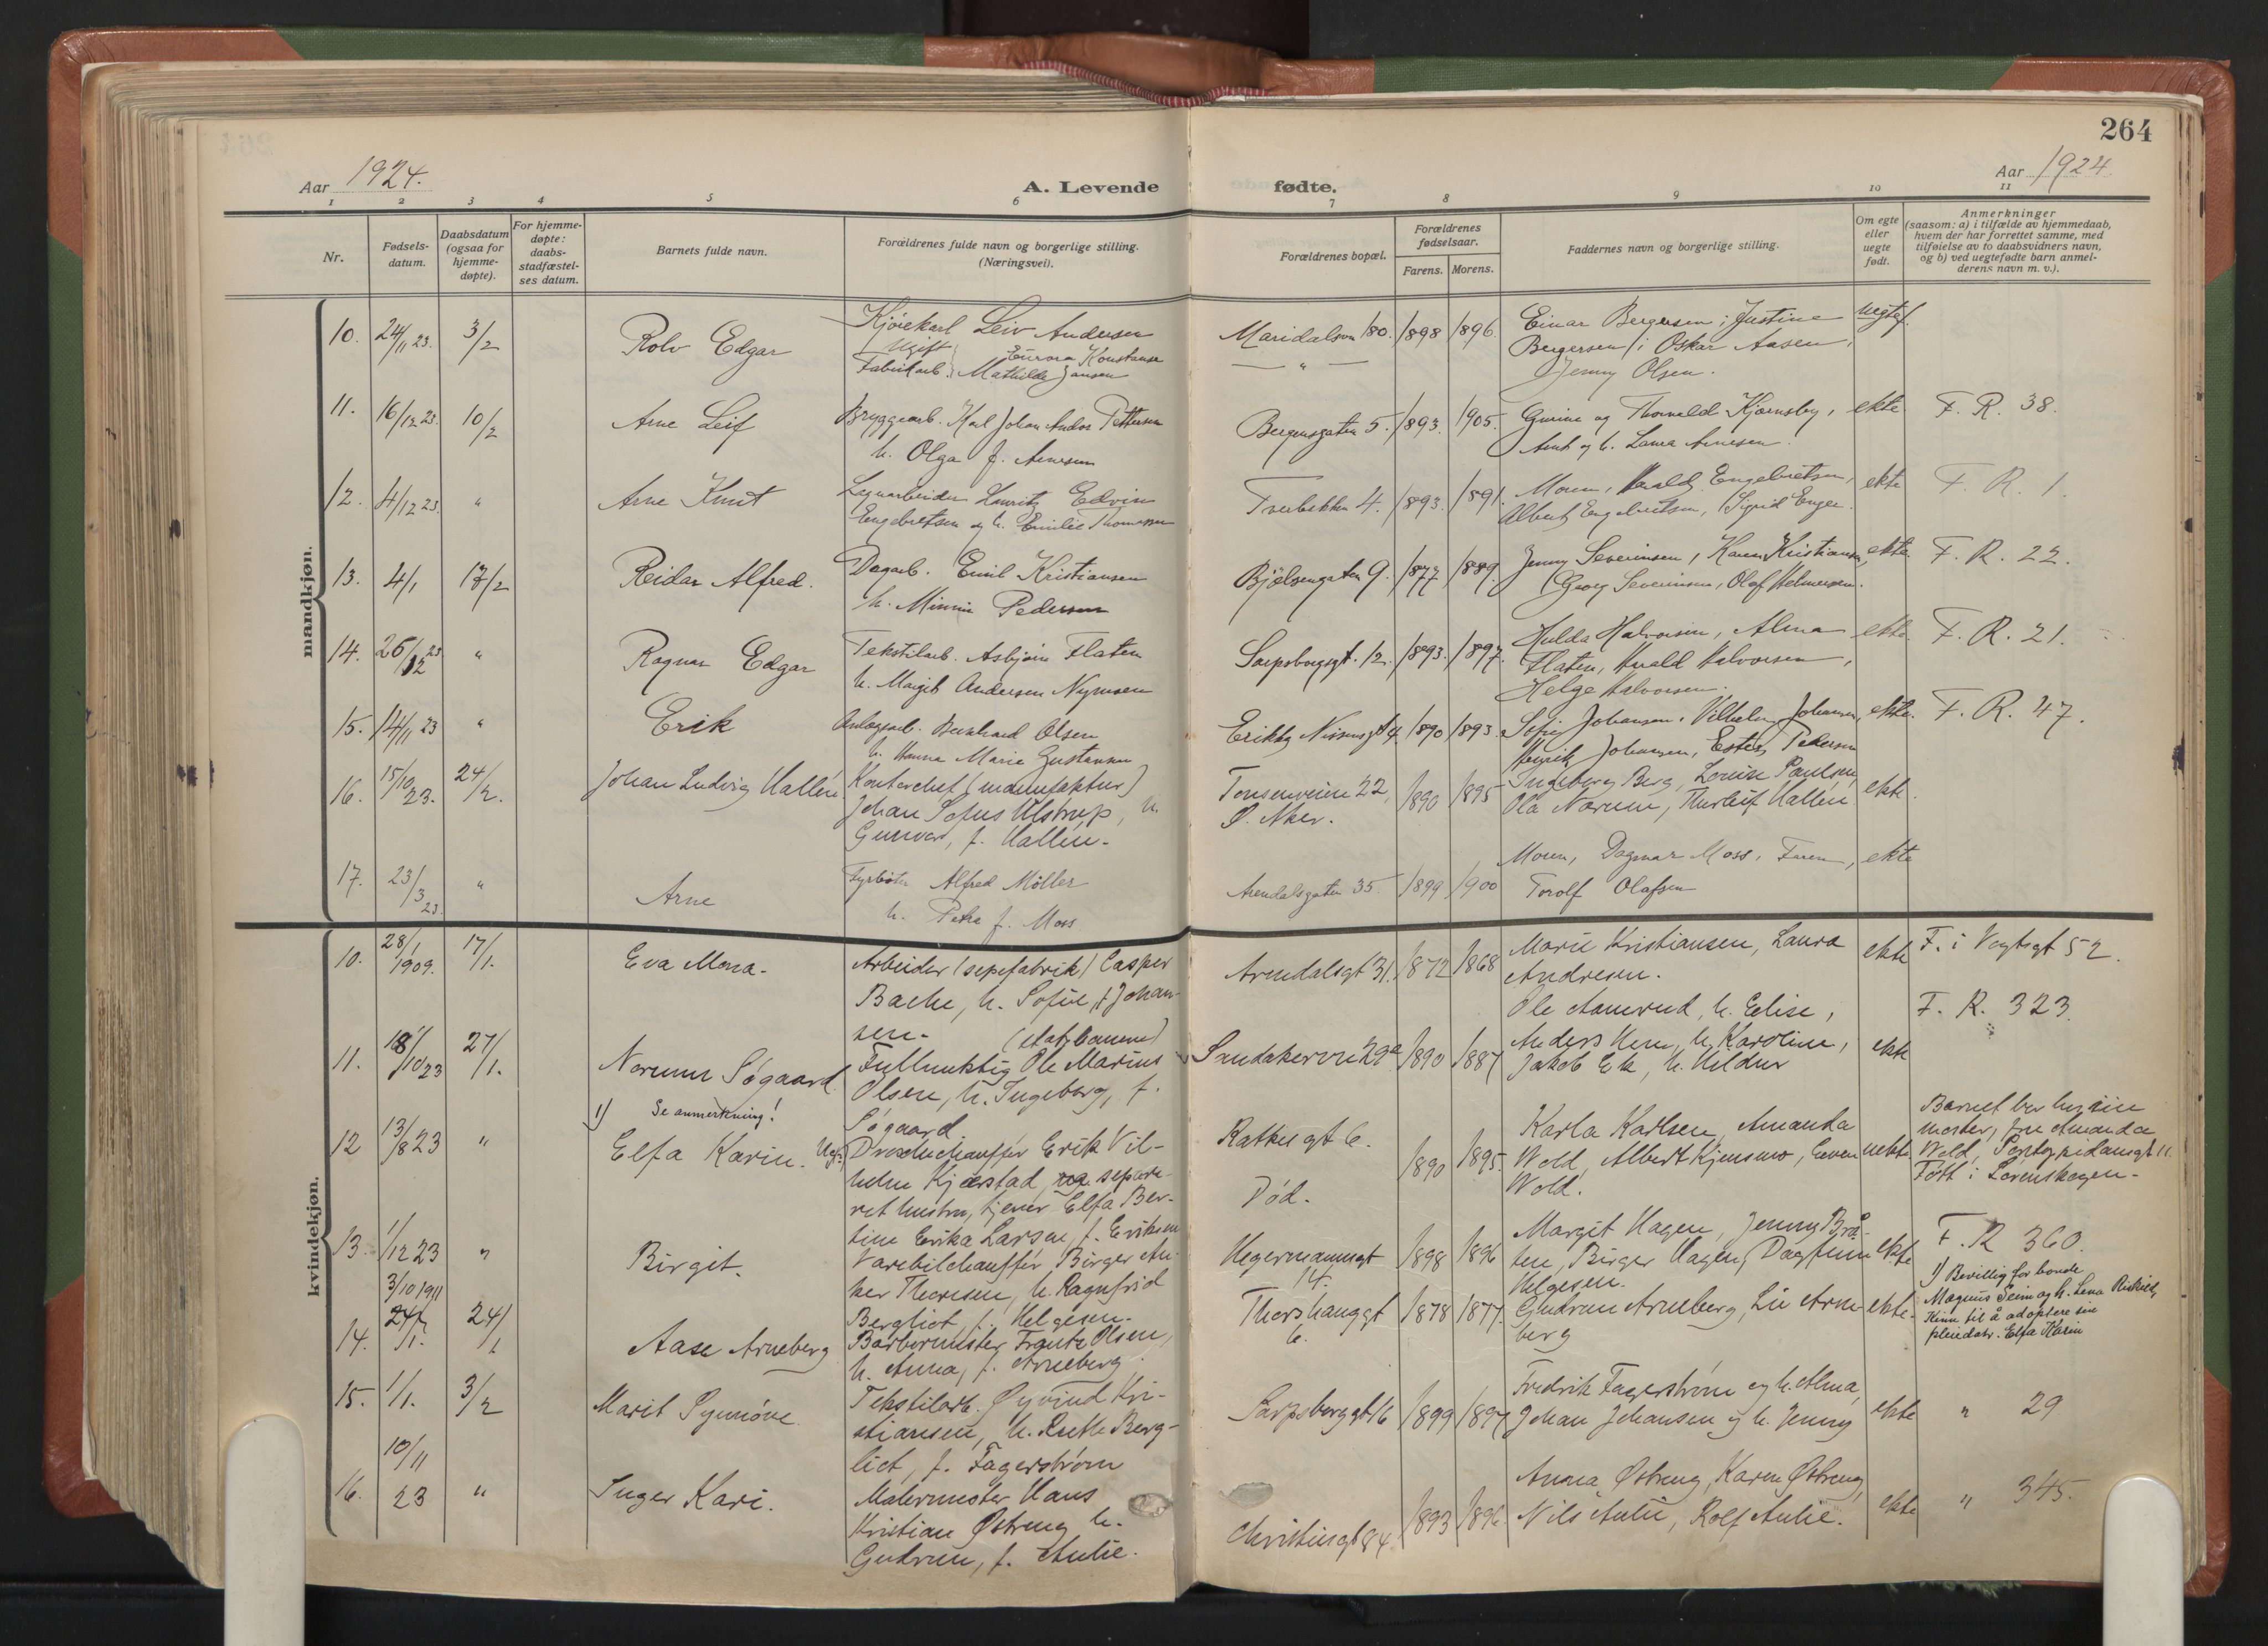 264
Aar 1924. A. Levende fødte. Aar 1924
1 2 3 4 5 6 7 8 9 10 11
Nr.
Fødsels-
datum.
Daabsdatum
(ogsaa for
hjemme-
døpte).
For hjemme-
døpte:
daabs-
stadfæstel-
ses datum.
Barnets fulde navn.
Forældrenes fulde navn og borgerlige stilling.
(Næringsvei).
Forældrenes bopæl.
Forældrenes
fødselsaar.
Farens. Morens.
Faddernes navn og borgerlige stilling.
Om egte
eller
uegte
født.
Anmerkninger
(saasom: a) i tilfælde av hjemmedaab,
hvem der har forrettet samme, med
tilføielse av to daabsvidners navn,
og b) ved uegtefødte barn anmel-
derens navn m. v.).
mandkjøn.
10. 24/11 23. 3/2 Rolv Edgar
Kjørekarl Leiv Andersen
Ugift Fabrikarb. Mathilde Jansen
Maridalsvn 180. 1898 1896.
Einar Bergersen, Justine
Bergersen, Oskar Aasen,
Jenny Olsen.
uegtef.
11. 16/12 23. 10/2 Arne Leif
Bryggearb. Karl Johan Andor Pettersen
h. Olga f. Arnesen
Bergensgaten 5. 1893. 1905.
og Thorvald Kjørnsby,
og h. Laura Arnesen.
ekte F. R. 38.
12. 4/12 23. " Arne Knut
Lagerarbeider Lauritz Edvin
Engebretsen og h. Emilie Thomassen
Tverbakken 4. 1893. 1891.
Moren, Harald Engebretsen,
Albert Engebretsen, Sigrid Enger.
ekte F. R. 1.
13. 4/1 17/2 Reidar Alfred.
Dagarb. Emil Kristiansen
h. Minnie Pedersen
Bjølsengaten 9. 1877 1889.
Jenny Severinsen, Karen Kristiansen,
Georg Severinsen, Olaf Helmersen.
ekte. F. R. 22.
14. 26/12 23 " Ragnar Edgar
Tekstilarb. Asbjørn Flaten
h. Margit Andersen Nymoen
Sarpsborggt. 12. 1893. 1897.
Hulda Halvorsen, Alma
Flaten, Harald Halvorsen,
Helge Halvorsen.
ekte F. R. 21.
15. 14/11 23 " Erik
Anlægsarb. Bernhard Olsen
h. Hanna Marie Gustavsen
Erikka Nissensgt 4. 1890 1893.
Sofie Johansen, Vilhelm Johansen,
Henrik Johansen, Ester Pedersen
ekte. F. R. 47.
16. 15/10 23. 24/2. Johan Ludvig Hallén
Kontorchef (manufaktur)
Johan Sofus Ulstrup, h.
Gunvor, f. Hallén.
Tonsenveien 22,
Ø. Aker.
1890 1895
Ingeborg Berg, Louise Paulsen,
Ola Narum, Thorleif Hallén
ekte.
17. 23/3 23. " Arne
Fyrbøter Alfred Möller
h. Petra f. Moss
Arendalsgaten 35. 1899 1900
Moren, Dagmar Moss, Faren,
Torolf Olafsen
ekte
kvindekjøn.
10. 28/1 1909. 17/1. Eva Mona.
Arbeider (sepefabrik) Casper
Bache, h. Sofie, f. Johan-
sen.
Arendalsgt 31. 1872 1868
Marie Kristiansen, Laura
Andresen.
ekte F. i Vogtsgt 52.
11. 18/10 23 27/1. Normun Søgaard.
(statsbanene)
Fullmektig Ole Marius
Olsen, h. Ingeborg, f.
Søgaard
Sandakervn 29a 1890 1887
Ole Aamrud, h. Elise,
Anders Hem, h. Karoline,
Jakob Ek, h. Hildur
ekte F. R. 323.
1) Se anmerkning!
12 13/8 23 " Elfa Karin.
Ugift Droschechauffør Erik Vil-
helm Kjærstad, og separe-
ret hustru, tjener Elfa Ber-
tine Erika Larsen, f. Eriksen
Ratkesgt 6.
Død.
1890 1895.
Karla Karlsen, Amanda
Wold, Albert Kjensmo, Even
Wold.
uekte.
Barnet bor hos sin
moster, fru Amanda
Wold, Pontoppidansgt 11.
Født i Lørenskogen.
13. 1/12 23 " Birgit.
Varebilchauffør Birger An-
ker Thoresen, h. Ragnfrid
Bergliot, f. Helgesen.
Hegermannsgt
14.
1898 1896
Margit Hagen, Jenny Brå-
ten, Birger Hagen, Dagfinn
Helgesen.
ekte F. R 360.
1) Bevillig for bonde
Magnus Seim og h. Lena
Kinn til å adoptere sin
pleiedatr. Elfa Karin
14. 3/10 1911 24/1. 24/1 Aase Arneberg
Barbermester Frantz Olsen,
h. Anna, f. Arneberg.
Thorshauggt
6.
1878 1877.
Gudrun Arneberg, Liv Arne-
berg
ekte.
15. 1/1. 3/2 Marit Synnøve
Tekstilarb. Øyvind Kri-
stiansen, h. Ruth Berg-
liot, f. Fagerstrøm
Sarpsborggt 16 1899 1897
Fredrik Fagerstrøm og h. Alma,
Johan Johansen og h. Jenny
ekte " 29
16. 10/11 23 " Inger Kari.
Malermester Hans
Kristian Østreng h.
Gudrun, f. Aulie.
Christiesgt 84 1893 1896
Anna Østreng, Karen Østreng,
Nils Aulie, Rolf Aulie.
ekte " 345.